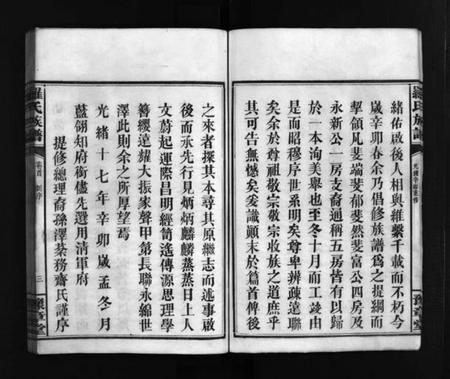 羅氏族譜
緒佑啟後人相與維繫千載而不朽今
歲辛卯春余乃倡修族譜爲之提綱而
挈領凡斐端斐郁斐然斐富公四房及
永新公一房支裔通稱五房皆有以歸
於一本洵美舉也至冬十月而工竣由
是而昭穆序世系明矣尊卑辨疎遠聯
矣余於尊祖敬宗敬宗收族之道庶乎
其可告無憾矣爰識顛末於篇首俾後
之來者探其本尋其原繼志而述事啟
後而承先行見炳炳麟麟蒸蒸日上人
文蔚起運際昌明經笥遙傳源思理學
簪纓遠耀大振家聲甲第長聯永綿世
澤此則余之所厚望焉
光緒十七年辛卯歲孟冬月
藍翎知府銜儘先選用清軍府
提修總理裔孫澤蓁務齋氏謹序
羅氏族譜
三
豫章堂